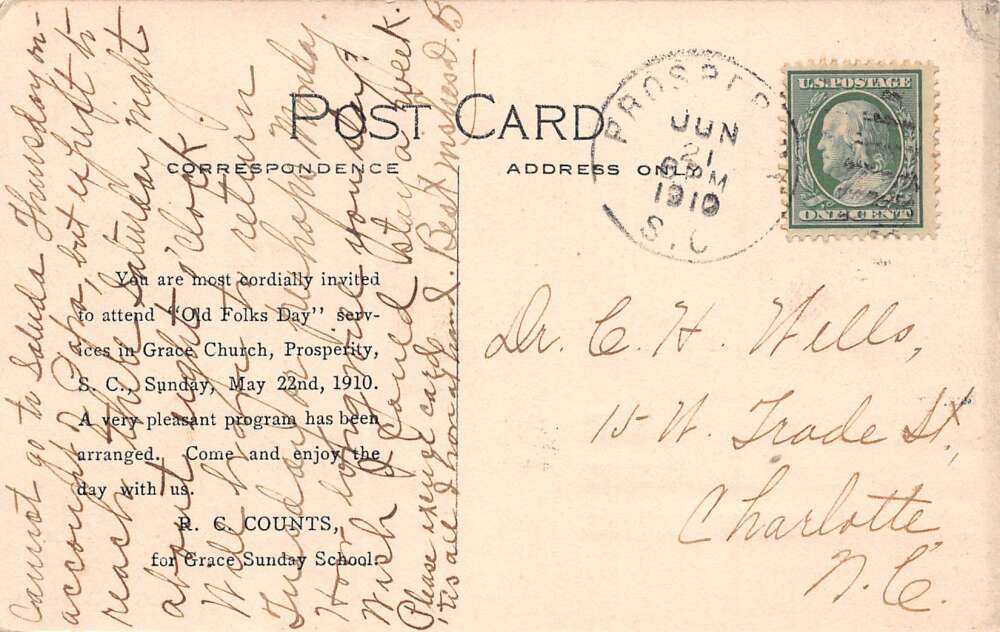 POST CARD
CORRESPONDENCE
ADDRESS ONLY
PROSPER
JUN
21
PM
1910
S.C
U.S. POSTAGE
ONE CENT
You are most cordially invited
to attend "Old Folks Day" serv-
ices in Grace Church, Prosperity,
S. C., Sunday, May 22nd, 1910.
A very pleasant program has been
arranged. Come and enjoy the
day with us.
R. C. COUNTS,
for Grace Sunday School.
Dr. C. H. Wells,
15 W. Trade St,
Charlotte,
N.C.
Cannot go to Saluda Thursday on
account Papa, but expect to
reach there Saturday night
about eight o'clock.
Will have to return
Tuesday or perhaps Monday.
How long will you stay?
Wish I could stay a week.
Please excuse card
'tis all I have on hand. Best wishes J. B